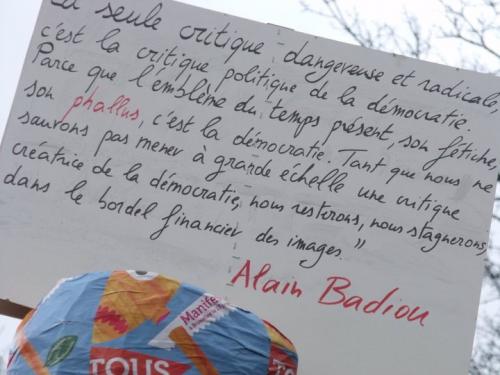 La seule critique dangereuse et radicale,
c'est la critique politique de la démocratie.
Parce que l'emblème du temps présent, son fétiche,
son phallus, c'est la démocratie. Tant que nous ne
saurons pas mener à grande échelle une critique
créatrice de la démocratie, nous resterons, nous stagnerons,
dans le bordel financier des images."
Alain Badiou
Manife
TOUS